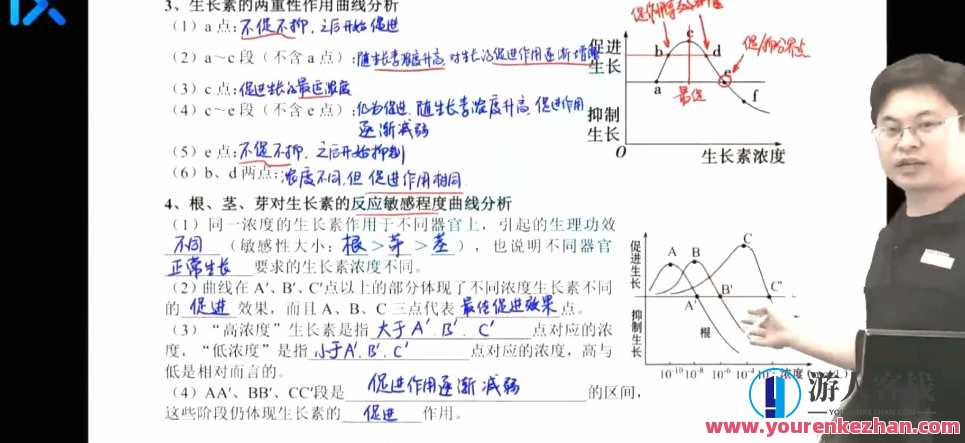 3、生长素的两重性作用曲线分析
（1）a点:不促不抑，之后开始促进
（2）a～c段（不含a点）:随生长素浓度升高,对生长的促进作用逐渐增强
（3）c点:促进生长的最适浓度
（4）c～e段（不含e点）:仍为促进,随生长素浓度升高,促进作用
逐渐减弱
（5）e点:不促不抑，之后开始抑制
（6）b、d两点:浓度不同,但促进作用相同
促进
生长
抑制
生长
a
b
c
d
e
f
O
生长素浓度
最促
促/抑分界点
4、根、茎、芽对生长素的反应敏感程度曲线分析
（1）同一浓度的生长素作用于不同器官上，引起的生理功效
不同（敏感性大小：根>芽>茎），也说明不同器官
正常生长 要求的生长素浓度不同。
（2）曲线在A′、B′、C′点以上的部分体现了不同浓度生长素不同
的 促进 效果，而且A、B、C三点代表最佳促进效果点。
（3）“高浓度”生长素是指 大于A′.B′.C′ 点对应的浓
度，“低浓度”是指 小于A′.B′.C′ 点对应的浓度，高与
低是相对而言的。
（4）AA′、BB′、CC′段是 促进作用逐渐减弱 的区间，
这些阶段仍体现生长素的 促进 作用。
促进生长
抑制生长
A
B
C
A′
B′
C′
根
10⁻¹⁰ 10⁻⁸ 10⁻⁶ 10⁻⁴ 10⁻² 浓度
游人客栈
www.yourenkezhan.com
www.yourenkezhan.com